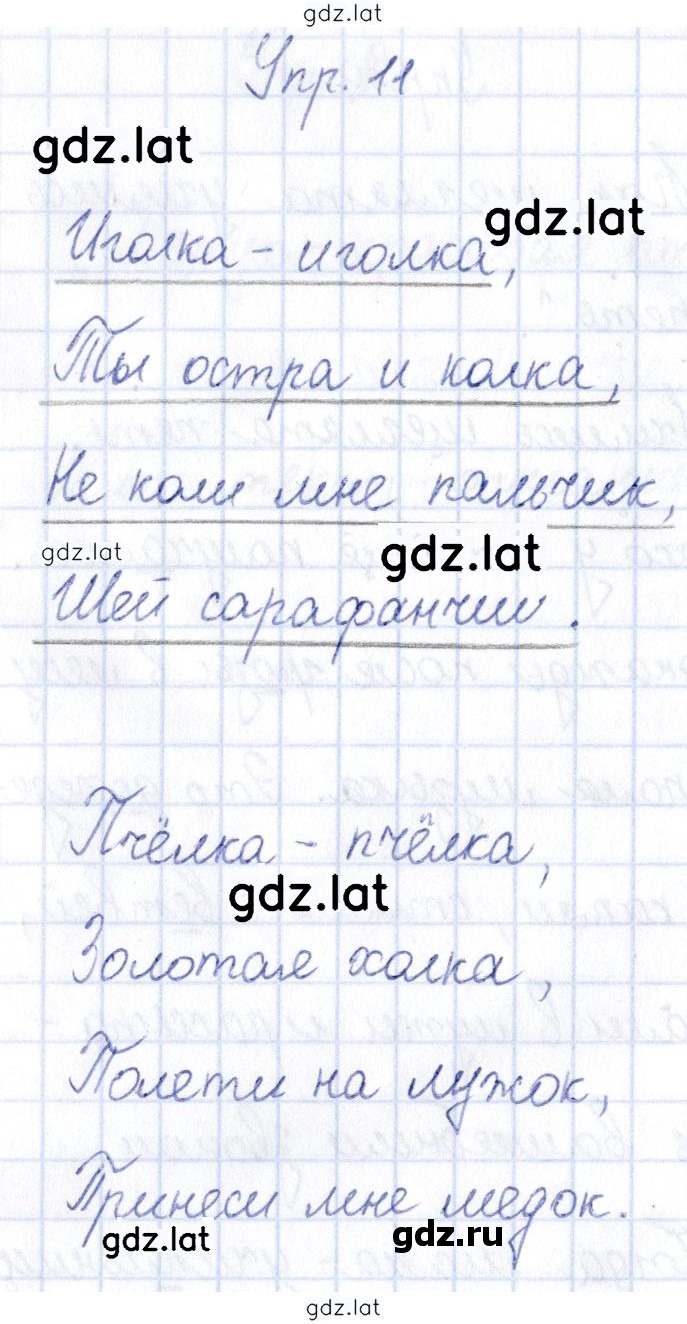 gdz.lat
Упр. 11
gdz.lat
gdz.lat
Иголка - иголка,
Ты остра и колка,
Не коли мне пальчик,
gdz.lat
gdz.lat
Шей сарафанчик.
Пчёлка - пчёлка,
gdz.lat
Золотая холка,
Полети на лужок,
Принеси мне медок.
gdz.lat
gdz.ru
gdz.lat